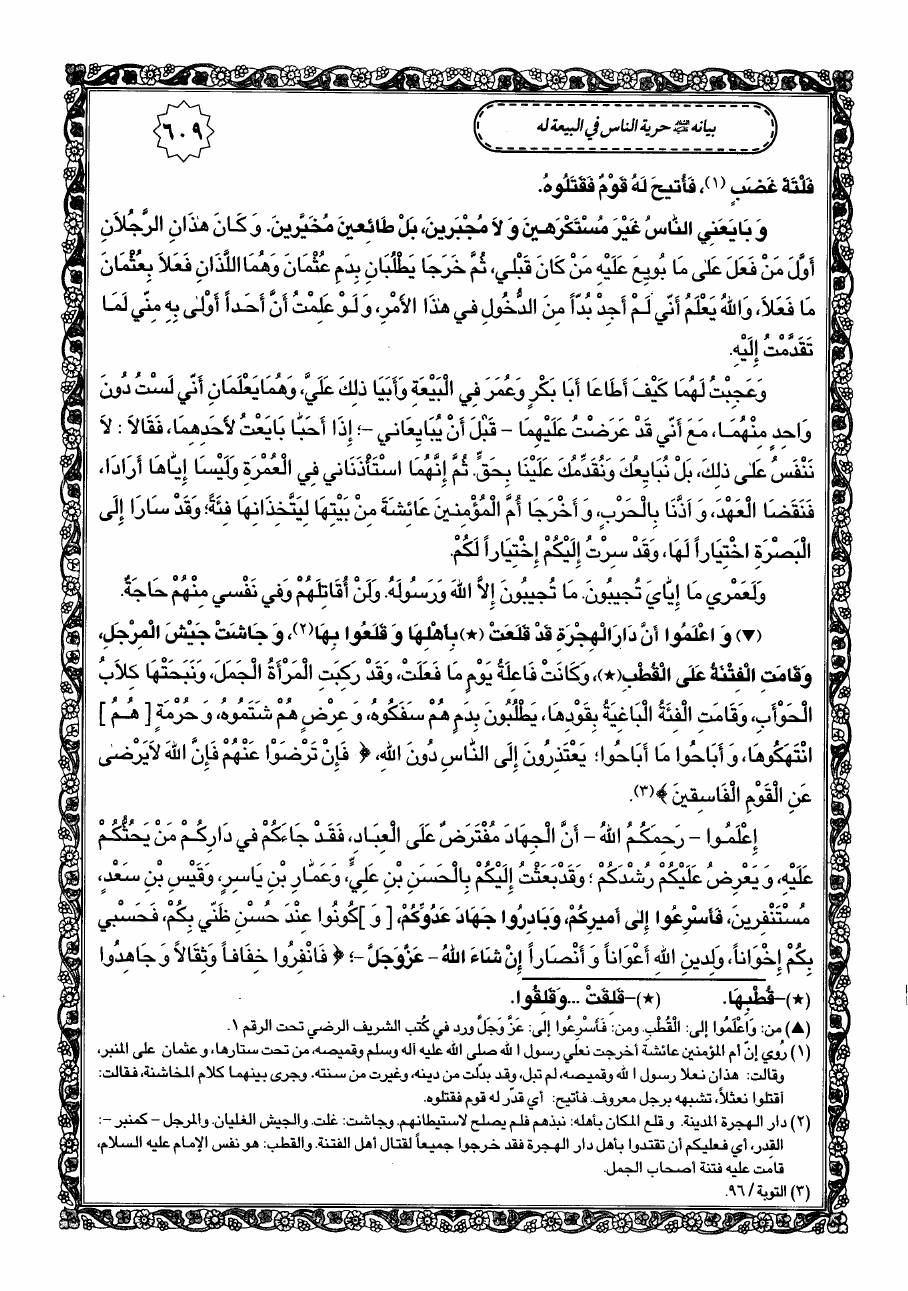 بيانه عليه السلام حرية الناس في البيعة له
٦٠٩
فَلْتَةُ غَضَبٍ (١)، فَأُتيحَ لَهُ قَوْمٌ فَقَتَلُوهُ.
وَ بَايَعَنِي النَّاسُ غَيْرَ مُسْتَكْرَهينَ وَ لاَ مُجْبَرينَ، بَلْ طَائِعينَ مُخَيَّرينَ. وَ كَانَ هٰذَانِ الرَّجُلاَنِ
أَوَّلَ مَنْ فَعَلَ عَلٰى مَا بُويِعَ عَلَيْهِ مَنْ كَانَ قَبْلي، ثُمَّ خَرَجَا يَطْلُبَانِ بِدَمِ عُثْمَانَ وَهُمَا اللَّذَانِ فَعَلاَ بِعُثْمَانَ
مَا فَعَلاَ، وَاللهُ يَعْلَمُ أَنّي لَمْ أَجِدْ بُدّاً مِنَ الدُّخُولِ في هٰذَا الأَمْرِ، وَ لَوْ عَلِمْتُ أَنَّ أَحَداً أَوْلٰى بِهِ مِنّي لَمَا
تَقَدَّمْتُ إِلَيْهِ.
وَعَجِبْتُ لَهُمَا كَيْفَ أَطَاعَا أَبَا بَكْرٍ وَعُمَرَ فِي الْبَيْعَةِ وَأَبَيَا ذٰلِكَ عَلَيَّ، وَهُمَايَعْلَمَانِ أَنّي لَسْتُ دُونَ
وَاحِدٍ مِنْهُمَا، مَعَ أَنّي قَدْ عَرَضْتُ عَلَيْهِمَا – قَبْلَ أَنْ يُبَايِعَاني –؛ إِذَا أَحَبَّا بَايَعْتُ لأَحَدِهِمَا، فَقَالاَ : لاَ
نَنْفَسُ عَلٰى ذٰلِكَ، بَلْ نُبَايِعُكَ وَنُقَدِّمُكَ عَلَيْنَا بِحَقٍّ. ثُمَّ إِنَّهُمَا اسْتَأْذَنَاني فِي الْعُمْرَةِ وَلَيْسَا إِيَّاهَا أَرَادَا،
فَنَقَضَا الْعَهْدَ، وَ أَذَّنَا بِالْحَرْبِ، وَ أَخْرَجَا أُمَّ الْمُؤْمِنينَ عَائِشَةَ مِنْ بَيْتِهَا لِيَتَّخِذَانِهَا فِئَةً؛ وَقَدْ سَارَا إِلَى
الْبَصْرَةِ اخْتِيَاراً لَهَا، وَقَدْ سِرْتُ إِلَيْكُمْ إِخْتِيَاراً لَكُمْ.
وَلَعَمْري مَا إِيَّايَ تُجيبُونَ. مَا تُجيبُونَ إِلاَّ اللهَ وَرَسُولَهُ. وَلَنْ أُقَاتِلَهُمْ وَفي نَفْسي مِنْهُمْ حَاجَةٌ.
(▼) وَ اعْلَمُوا أَنَّ دَارَالْهِجْرَةِ قَدْ قَلَعَتْ (★) بِأَهْلِهَا وَ قَلَعُوا بِهَا(٢)، وَ جَاشَتْ جَيْشَ الْمِرْجَلِ،
وَقَامَتِ الْفِتْنَةُ عَلَى الْقُطْبِ(★)، وَكَانَتْ فَاعِلَةُ يَوْمٍ مَا فَعَلَتْ، وَقَدْ رَكِبَتِ الْمَرْأَةُ الْجَمَلَ، وَنَبَحَتْهَا كِلاَبُ
الْحَوْأَبِ، وَقَامَتِ الْفِئَةُ الْبَاغِيَةُ بِقَوْدِهَا، يَطْلُبُونَ بِدَمٍ هُمْ سَفَكُوهُ، وَ عِرْضٍ هُمْ شَتَمُوهُ، وَ حُرْمَةٍ [ هُمُ ]
انْتَهَكُوهَا، وَ أَبَاحُوا مَا أَبَاحُوا؛ يَعْتَذِرُونَ إِلَى النَّاسِ دُونَ اللهِ، ﴿ فَإِنْ تَرْضَوْا عَنْهُمْ فَإِنَّ اللهَ لاَيَرْضٰى
عَنِ الْقَوْمِ الْفَاسِقينَ ﴾(٣).
إِعْلَمُوا – رَحِمَكُمُ اللهُ – أَنَّ الْجِهَادَ مُفْتَرَضٌ عَلَى الْعِبَادِ، فَقَدْ جَاءَكُمْ في دَارِكُمْ مَنْ يَحُثُّكُمْ
عَلَيْهِ، وَ يَعْرِضُ عَلَيْكُمْ رُشْدَكُمْ ؛ وَقَدْبَعَثْتُ إِلَيْكُمْ بِالْحَسَنِ بْنِ عَلِيٍّ، وَعَمَّارِ بْنِ يَاسِرٍ، وَقَيْسِ بْنِ سَعْدٍ،
مُسْتَنْفِرينَ، فَأَسْرِعُوا إِلى أَميرِكُمْ، وَبَادِرُوا جِهَادَ عَدُوِّكُمْ، [ وَ ]كُونُوا عِنْدَ حُسْنِ ظَنّي بِكُمْ، فَحَسْبي
بِكُمْ إِخْوَاناً، وَلِدينِ اللهِ أَعْوَاناً وَ أَنْصَاراً إِنْ شَاءَ اللهُ – عَزَّوَجَلَّ –؛ ﴿ فَانْفِرُوا خِفَافاً وَثِقَالاً وَ جَاهِدُوا
(★)– قُطْبِهَا. (★)– قَلِقَتْ ...وَقَلِقُوا.
(▲) من: وَاعْلَمُوا إلى: الْقُطْبِ. ومن: فَأَسْرِعُوا إلى: عَزَّ وَجَلَّ ورد في كُتب الشريف الرضي تحت الرقم ١.
(١) رُوي إنّ أم المؤمنين عائشة أخرجت نعلي رسول ا لله صلى الله عليه آله وسلم وقميصه، من تحت ستارها، و عثمان على المنبر،
وقالت: هذان نعلا رسول ا لله وقميصه، لم تبل، وقد بدلّت من دينه، وغيرت من سنته. وجرى بينهما كلام المخاشنة، فقالت:
أقتلوا نعثلاً، تشبهه برجل معروف. فأتيح: أي قدّر له قوم فقتلوه.
(٢) دار الهجرة المدينة. و قلع المكان بأهله: نبذهم فلم يصلح لاستيطانهم. وجاشت: غلت. والجيش الغليان. والمرجل – كمنبر –:
القِدر، أي فعليكم أن تقتدوا بأهل دار الهجرة فقد خرجوا جميعاً لقتال أهل الفتنة. والقطب: هو نفس الإمام عليه السلام،
قامت عليه فتنة أصحاب الجمل.
(٣) التوبة / ٩٦.